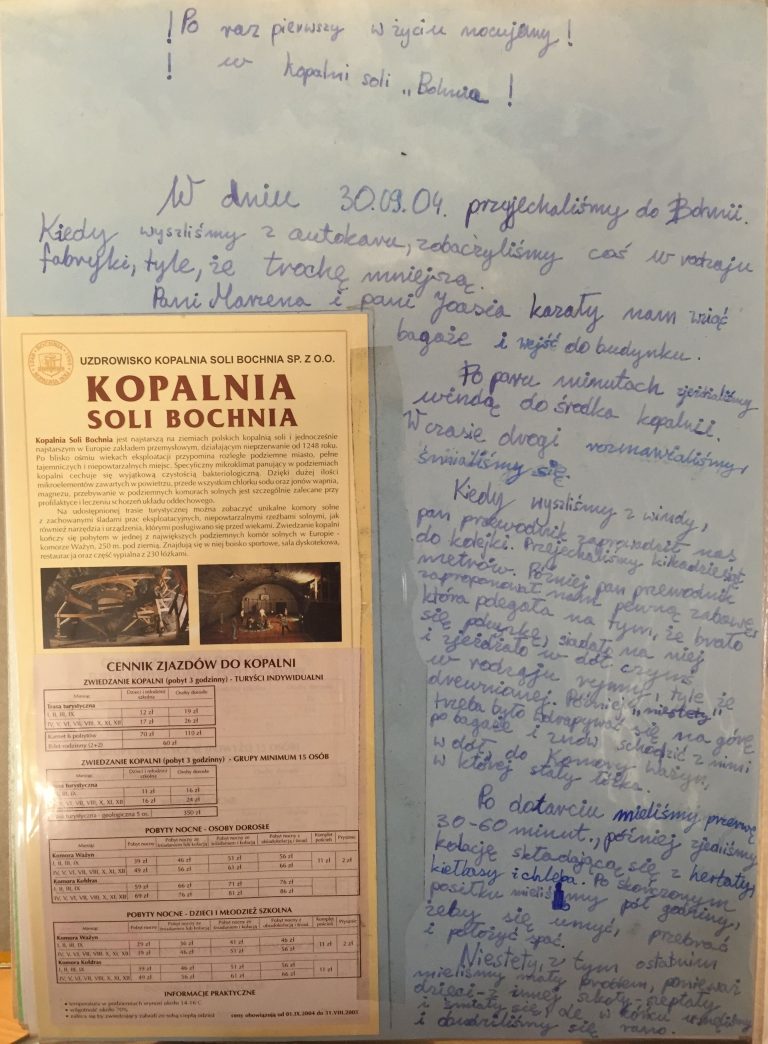 ! Po raz pierwszy w życiu nocujemy !
! w kopalni soli „Bohnia !
W dniu 30.09.04. przyjechaliśmy do Bohnii.
Kiedy wyszliśmy z autokaru, zobaczyliśmy coś w rodzaju
fabryki, tyle, że trochę mniejszą.
Pani Marzena i pani Joasia kazały nam wziąć
bagaże i wejść do budynku.
Po paru minutach zjechaliśmy
windą do środka kopalni.
W czasie drogi rozmawialiśmy,
śmialiśmy się.
Kiedy wyszliśmy z windy,
pan przewodnik zaprowadził nas
do kolejki. Przejechaliśmy kilkadziesiąt
metrów. Później pan przewodnik
zaproponował nam pewną zabawę,
która polegała na tym, że brało
się poduszkę, siadało na niej
i zjeżdżało w dół czymś
w rodzaju rynny, tyle że
drewnianej. Później „niestety"
trzeba było wdrapywać się na górę
po bagaże i znów schodzić z nimi
w dół, do Komory Ważyn,
w której stały łóżka.
Po dotarciu mieliśmy przerwę
30-60 minut., później zjedliśmy
kolację składającą się z herbaty,
kiełbasy i chleba. Po skończonym
posiłku mieliśmy pół godziny,
żeby się umyć, przebrać
i położyć spać.
Niestety, z tym ostatnim
mieliśmy mały problem, ponieważ
dzieci z innej szkoły szeptały
i śmiały się, ale w końcu usnęliśmy
i obudziliśmy się rano.
UZDROWISKO KOPALNIA SOLI BOCHNIA SP. Z O.O.
KOPALNIA
SOLI BOCHNIA
Kopalnia Soli Bochnia jest najstarszą na ziemiach polskich kopalnią soli i jednocześnie
najstarszym w Europie zakładem przemysłowym, działającym nieprzerwanie od 1248 roku.
Po blisko ośmiu wiekach eksploatacji przypomina rozległe podziemne miasto, pełne
tajemniczych i niepowtarzalnych miejsc. Specyficzny mikroklimat panujący w podziemiach
kopalni cechuje się wyjątkową czystością bakteriologiczną. Dzięki dużej ilości
mikroelementów zawartych w powietrzu, przede wszystkim chlorku sodu oraz jonów wapnia,
magnezu, przebywanie w podziemnych komorach solnych jest szczególnie zalecane przy
profilaktyce i leczeniu schorzeń układu oddechowego.
Na udostępnionej trasie turystycznej można zobaczyć unikalne komory solne
z zachowanymi śladami prac eksploatacyjnych, niepowtarzalnymi rzeźbami solnymi, jak
również narzędzia i urządzenia, którymi posługiwano się przed wiekami. Zwiedzanie kopalni
kończy się pobytem w jednej z największych podziemnych komór solnych w Europie -
komorze Ważyn, 250 m. pod ziemią. Znajdują się w niej boisko sportowe, sala dyskotekowa,
restauracja oraz część sypialna z 230 łóżkami.
CENNIK ZJAZDÓW DO KOPALNI
ZWIEDZANIE KOPALNI (pobyt 3 godzinny) - TURYŚCI INDYWIDUALNI
Miesiąc Dzieci i młodzież szkolna Osoby dorosłe
Trasa turystyczna
I, II, III, IX 12 zł 19 zł
IV, V, VI, VII, VIII, X, XI, XII 17 zł 26 zł
Karnet 6 pobytów 70 zł 110 zł
Bilet rodzinny (2+2) 60 zł
ZWIEDZANIE KOPALNI (pobyt 3 godzinny) - GRUPY MINIMUM 15 OSÓB
Miesiąc Dzieci i młodzież szkolna Osoby dorosłe
Trasa turystyczna
I, II, III, IX 11 zł 16 zł
IV, V, VI, VII, VIII, X, XI, XII 16 zł 24 zł
Trasa turystyczna - geologiczna 5 os. 350 zł
POBYTY NOCNE - OSOBY DOROSŁE
Miesiąc Pobyt nocny Pobyt nocny ze śniadaniem lub kolacją Pobyt nocny ze śniadaniem i kolacją Komplet pościeli Prysznic
Komora Ważyn
I, II, III, IX 39 zł 46 zł 51 zł 56 zł 11 zł 2 zł
IV, V, VI, VII, VIII, X, XI, XII 49 zł 56 zł 61 zł 66 zł
Komora Kołdras
I, II, III, IX 59 zł 66 zł 71 zł 76 zł
IV, V, VI, VII, VIII, X, XI, XII 69 zł 76 zł 81 zł 86 zł
POBYTY NOCNE - DZIECI I MŁODZIEŻ SZKOLNA
Komora Ważyn
I, II, III, IX 29 zł 36 zł 41 zł 46 zł 11 zł 2 zł
IV, V, VI, VII, VIII, X, XI, XII 39 zł 46 zł 51 zł 56 zł
Komora Kołdras
I, II, III, IX 39 zł 46 zł 51 zł 56 zł 11 zł
IV, V, VI, VII, VIII, X, XI, XII 49 zł 56 zł 61 zł 66 zł
INFORMACJE PRAKTYCZNE
• temperatura w podziemiach wynosi około 14-16°C
• wilgotność około 70%
• zaleca się by zwiedzający zabrali ze sobą ciepłą odzież
ceny obowiązują od 01.IX.2004 do 31.VIII.2005